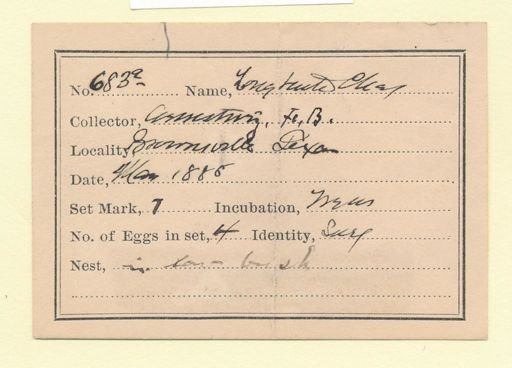 No. 683a Name, Longtailed Chat
Collector, Armstrong, F. B.
Locality, Brownsville Texas
Date, May 1886
Set Mark, 7 Incubation,
No. of Eggs in set, 4 Identity, Sure
Nest, in low bush